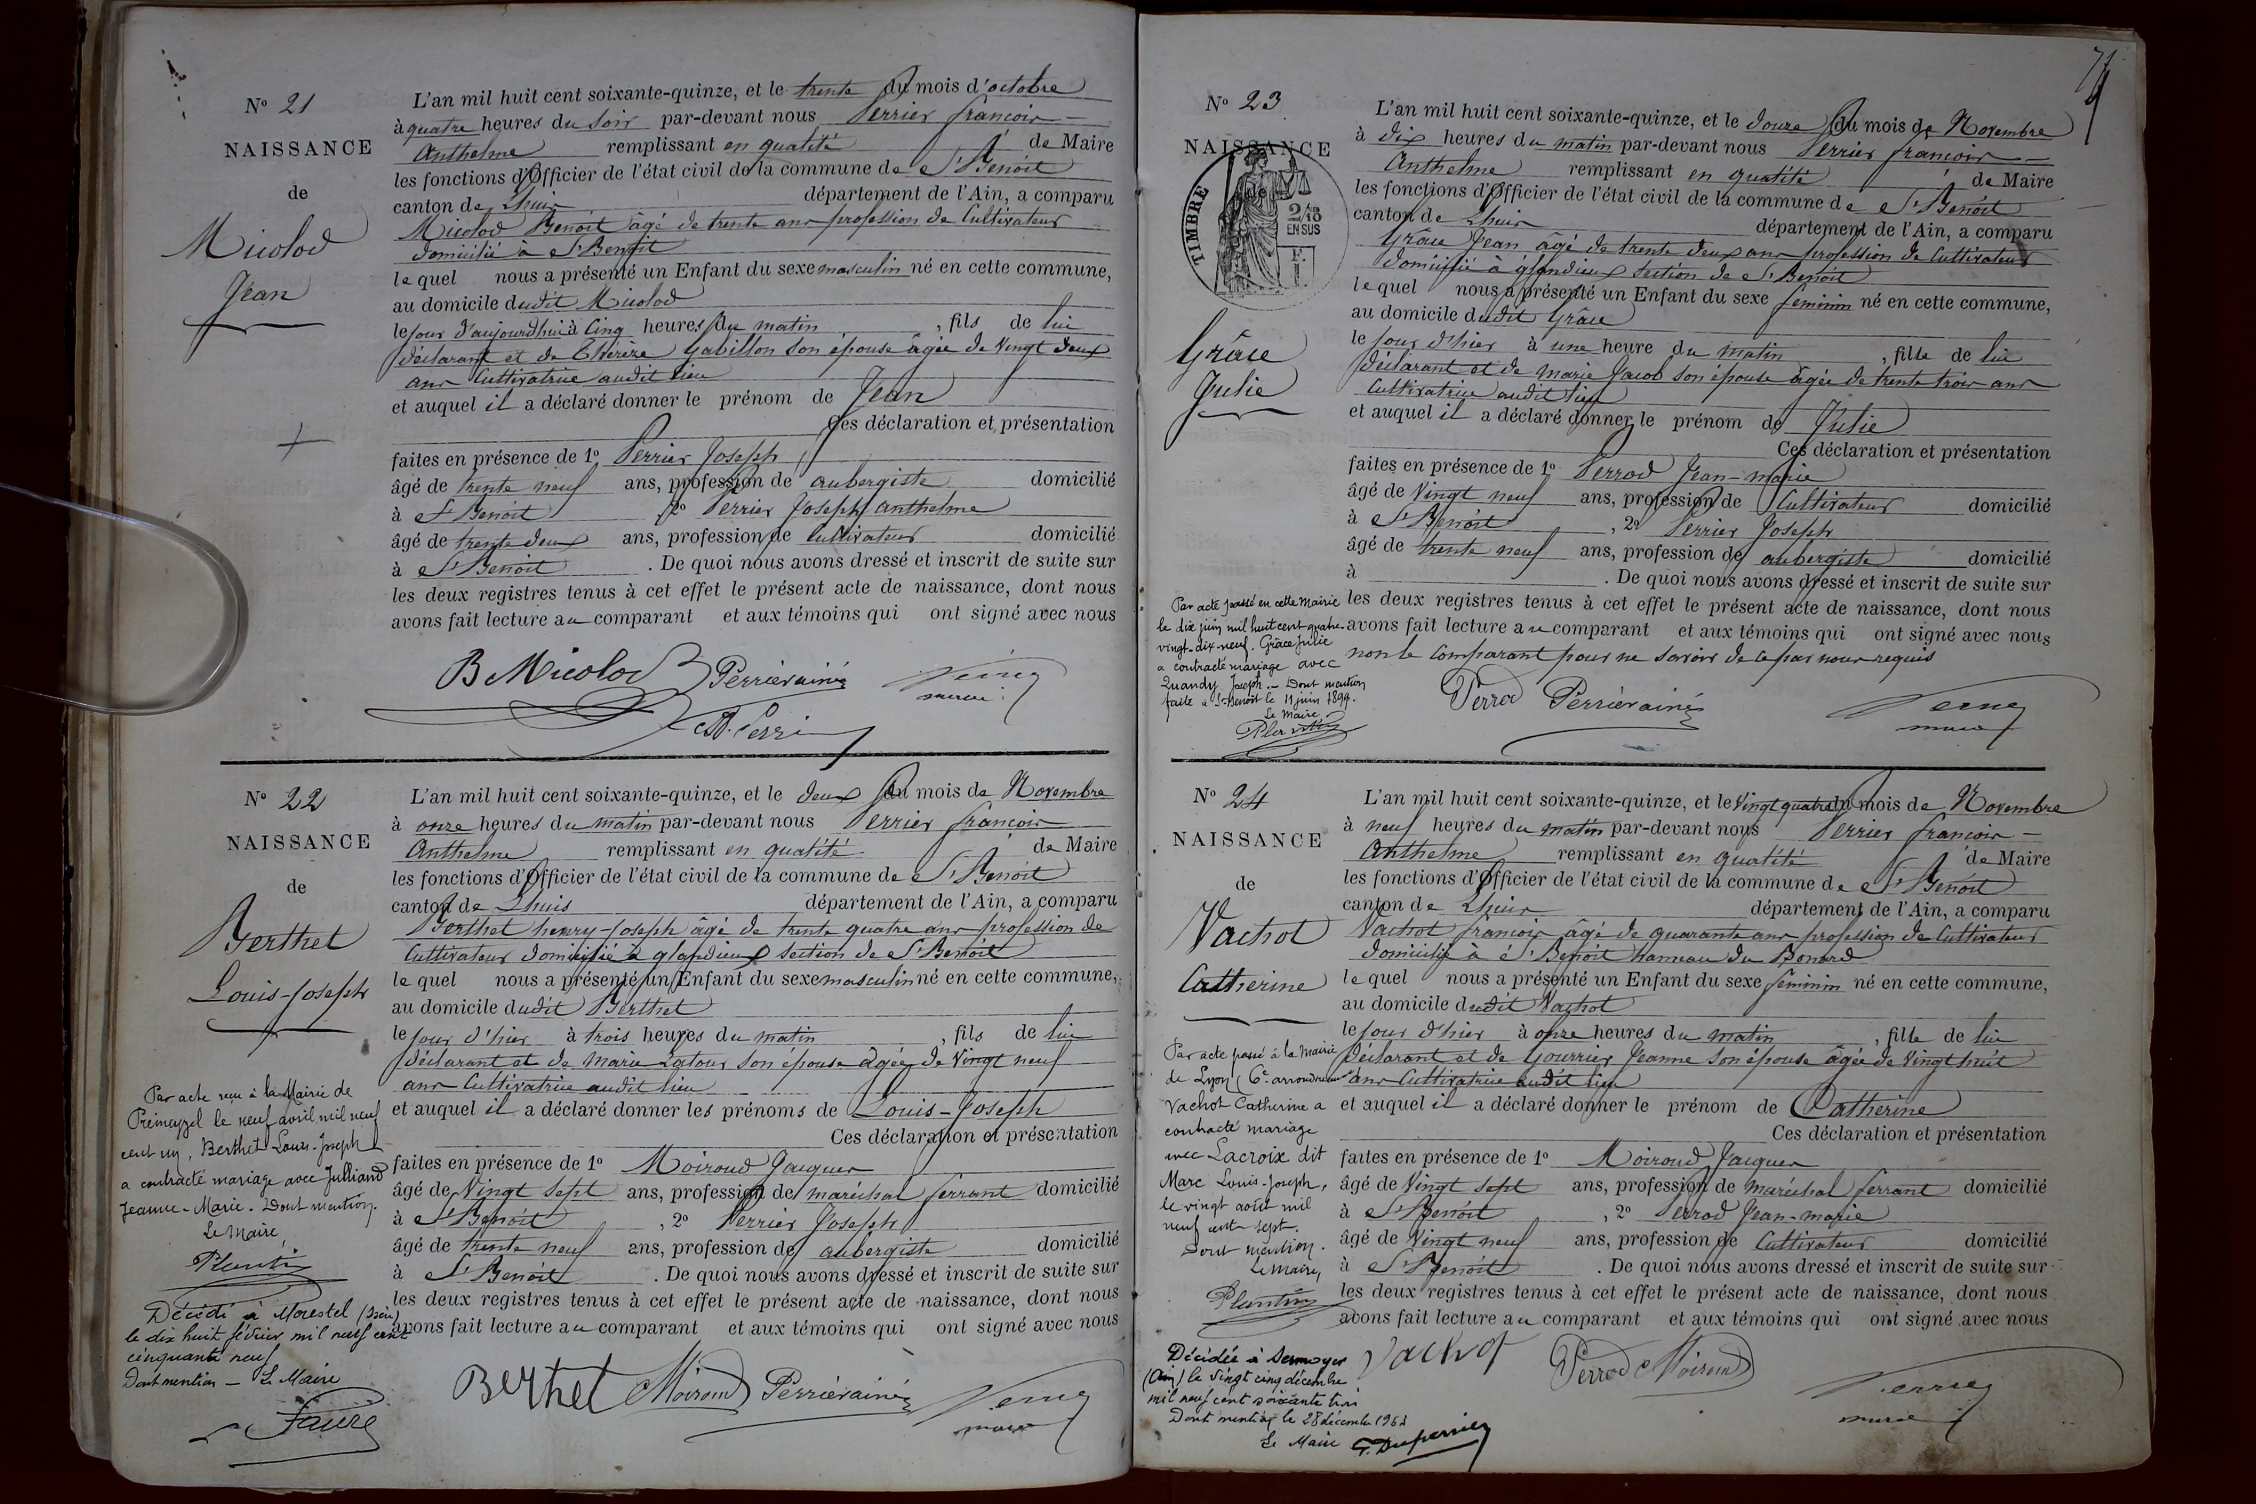 N° 21
NAISSANCE
de
Micolod
Jean
L'an mil huit cent soixante-quinze, et le trente du mois d'octobre
à quatre heures du soir par-devant nous Perrier françois
Anthelme remplissant en qualité de Maire
les fonctions d'Officier de l'état civil de la commune de St Benoit
canton de Lhuis département de l'Ain, a comparu
Micolod Benoit âgé de trente ans profession de Cultivateur
domicilié à St Benoit
lequel nous a présenté un Enfant du sexe masculin né en cette commune,
au domicile dudit Micolod
le jour d'aujourdhui à Cinq heures du matin, fils de lui
déclarant et de Thérèze Gabillon son épouse âgée de vingt deux
ans Cultivatrice audit lieu
et auquel il a déclaré donner le prénom de Jean
Ces déclaration et présentation
faites en présence de 1° Perrier Joseph
âgé de trente neuf ans, profession de aubergiste domicilié
à St Benoit 2° Perrier Joseph anthelme
âgé de trente deux ans, profession de Cultivateur domicilié
à St Benoit. De quoi nous avons dressé et inscrit de suite sur
les deux registres tenus à cet effet le présent acte de naissance, dont nous
avons fait lecture au comparant et aux témoins qui ont signé avec nous
B Micolod Perrier ainé
N° 22
NAISSANCE
de
Berthet
Louis-Joseph
L'an mil huit cent soixante-quinze, et le deux du mois de Novembre
à onze heures du matin par-devant nous Perrier françois
Anthelme remplissant en qualité de Maire
les fonctions d'Officier de l'état civil de la commune de St Benoit
canton de Lhuis département de l'Ain, a comparu
Berthet henry-Joseph âgé de trente quatre ans profession de
Cultivateur domicilié à glandieux section de St Benoit
lequel nous a présenté un Enfant du sexe masculin né en cette commune,
au domicile dudit Berthet
le jour d'hier à trois heures du matin, fils de lui
déclarant et de marie Latour son épouse âgée de vingt neuf
ans Cultivatrice audit lieu
et auquel il a déclaré donner les prénoms de Louis-Joseph
Ces déclaration et présentation
faites en présence de 1° Moiroud Jacques
âgé de Vingt sept ans, profession de maréchal ferrant domicilié
à St Benoit, 2° Perrier Joseph
âgé de trente neuf ans, profession de aubergiste domicilié
à St Benoit. De quoi nous avons dressé et inscrit de suite sur
les deux registres tenus à cet effet le présent acte de naissance, dont nous
avons fait lecture au comparant et aux témoins qui ont signé avec nous
Par acte reçu à la Mairie de
Prémeyzel le neuf avril mil neuf
cent un, Berthet Louis-Joseph
a contracté mariage avec Julliand
Jeanne-Marie. Dont mention.
Le Maire,
Plantin
Décédé à Morestel (Isère)
le dix huit février mil neuf cent
cinquante neuf
Dont mention — Le Maire
Faure
Berthet Moiroud Perrier ainé
74
N° 23
NAISSANCE
de
TIMBRE
2/10
EN SUS
Grâce
Julie
L'an mil huit cent soixante-quinze, et le douze du mois de Novembre
à dix heures du matin par-devant nous Perrier françois
Anthelme remplissant en qualité de Maire
les fonctions d'Officier de l'état civil de la commune de St Benoit
canton de Lhuis département de l'Ain, a comparu
Grâce Jean âgé de trente deux ans profession de Cultivateur
domicilié à glandieux section de St Benoit
lequel nous a présenté un Enfant du sexe feminin né en cette commune,
au domicile dudit Grâce
le jour d'hier à une heure du matin, fille de lui
déclarant et de marie Jacob son épouse âgée de trente trois ans
Cultivatrice audit lieu
et auquel il a déclaré donner le prénom de Julie
Ces déclaration et présentation
faites en présence de 1° Perrod Jean-marie
âgé de Vingt neuf ans, profession de Cultivateur domicilié
à St Benoit, 2° Perrier Joseph
âgé de trente neuf ans, profession de aubergiste domicilié
à. De quoi nous avons dressé et inscrit de suite sur
les deux registres tenus à cet effet le présent acte de naissance, dont nous
avons fait lecture au comparant et aux témoins qui ont signé avec nous
non le comparant pour ne savoir de ce par nous requis
Par acte passé en cette Mairie
le dix juin mil huit cent quatre-
vingt-dix-neuf. Grâce Julie
a contracté mariage avec
Quandy Joseph.- Dont mention
faite à St-Benoit le 11 juin 1899.
Le Maire
Perrod Perrier ainé
N° 24
NAISSANCE
de
Vachot
Catherine
L'an mil huit cent soixante-quinze, et le Vingt quatre du mois de Novembre
à neuf heures du matin par-devant nous Perrier françois
Anthelme remplissant en qualité de Maire
les fonctions d'Officier de l'état civil de la commune de St Benoit
canton de Lhuis département de l'Ain, a comparu
Vachot françois âgé de quarante ans profession de Cultivateur
domicilié à St Benoit hameau du Bonard
lequel nous a présenté un Enfant du sexe feminin né en cette commune,
au domicile dudit Vachot
le jour d'hier à onze heures du matin, fille de lui
déclarant et de Gourrier Jeanne son épouse âgée de vingt huit
ans Cultivatrice audit lieu
et auquel il a déclaré donner le prénom de Catherine
Ces déclaration et présentation
faites en présence de 1° Moiroud Jacques
âgé de Vingt sept ans, profession de maréchal ferrant domicilié
à St Benoit, 2° Perrod Jean-marie
âgé de Vingt neuf ans, profession de Cultivateur domicilié
à St Benoit. De quoi nous avons dressé et inscrit de suite sur
les deux registres tenus à cet effet le présent acte de naissance, dont nous
avons fait lecture au comparant et aux témoins qui ont signé avec nous
Par acte passé à la Mairie
de Lyon (6e arrondissement)
Vachot Catherine a
contracté mariage
avec Lacroix dit
Marc Louis-Joseph,
le vingt août mil
neuf cent sept.
Dont mention.
Le Maire,
Plantin
Décédée à Sermoyer
(Ain) le vingt cinq décembre
mil neuf cent soixante trois
Dont mention le 28 décembre 1963
Le Maire G. Duperrier
Vachot Perrod Moiroud